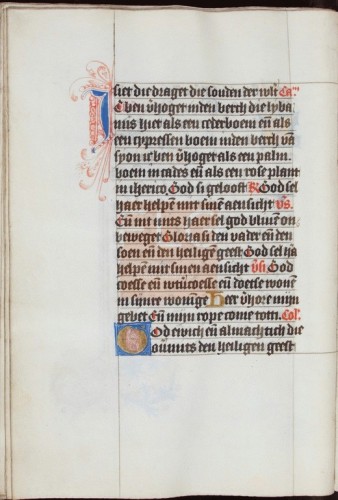 siet die draget die sonden der werlt Cap.
Ic ben v̄hoget inden berch die lyba
nus hiet als een cederboem eñ als
een cypressen boem inden berch vā
syon ic ben v̄hoget als een palm
boem in cades eñ als een rose plant
in iherico God si geloeft R̸ God sel
haer helpē mit sinē aensicht v̄s.
Eñ int mits haer sel god bliuen on
beweget Gloria si den vader eñ den
soen eñ den heiligen geest God sel ha
helpē mit sinen aensicht v̄s God
coesse eñ wtūcoesse eñ doetse wonē
in sijnre woninge Heer v̄hore mijn
gebet Eñ mijn rope come totti. Col.
God ewich eñ almachtich die
ouermits den heiligen geest